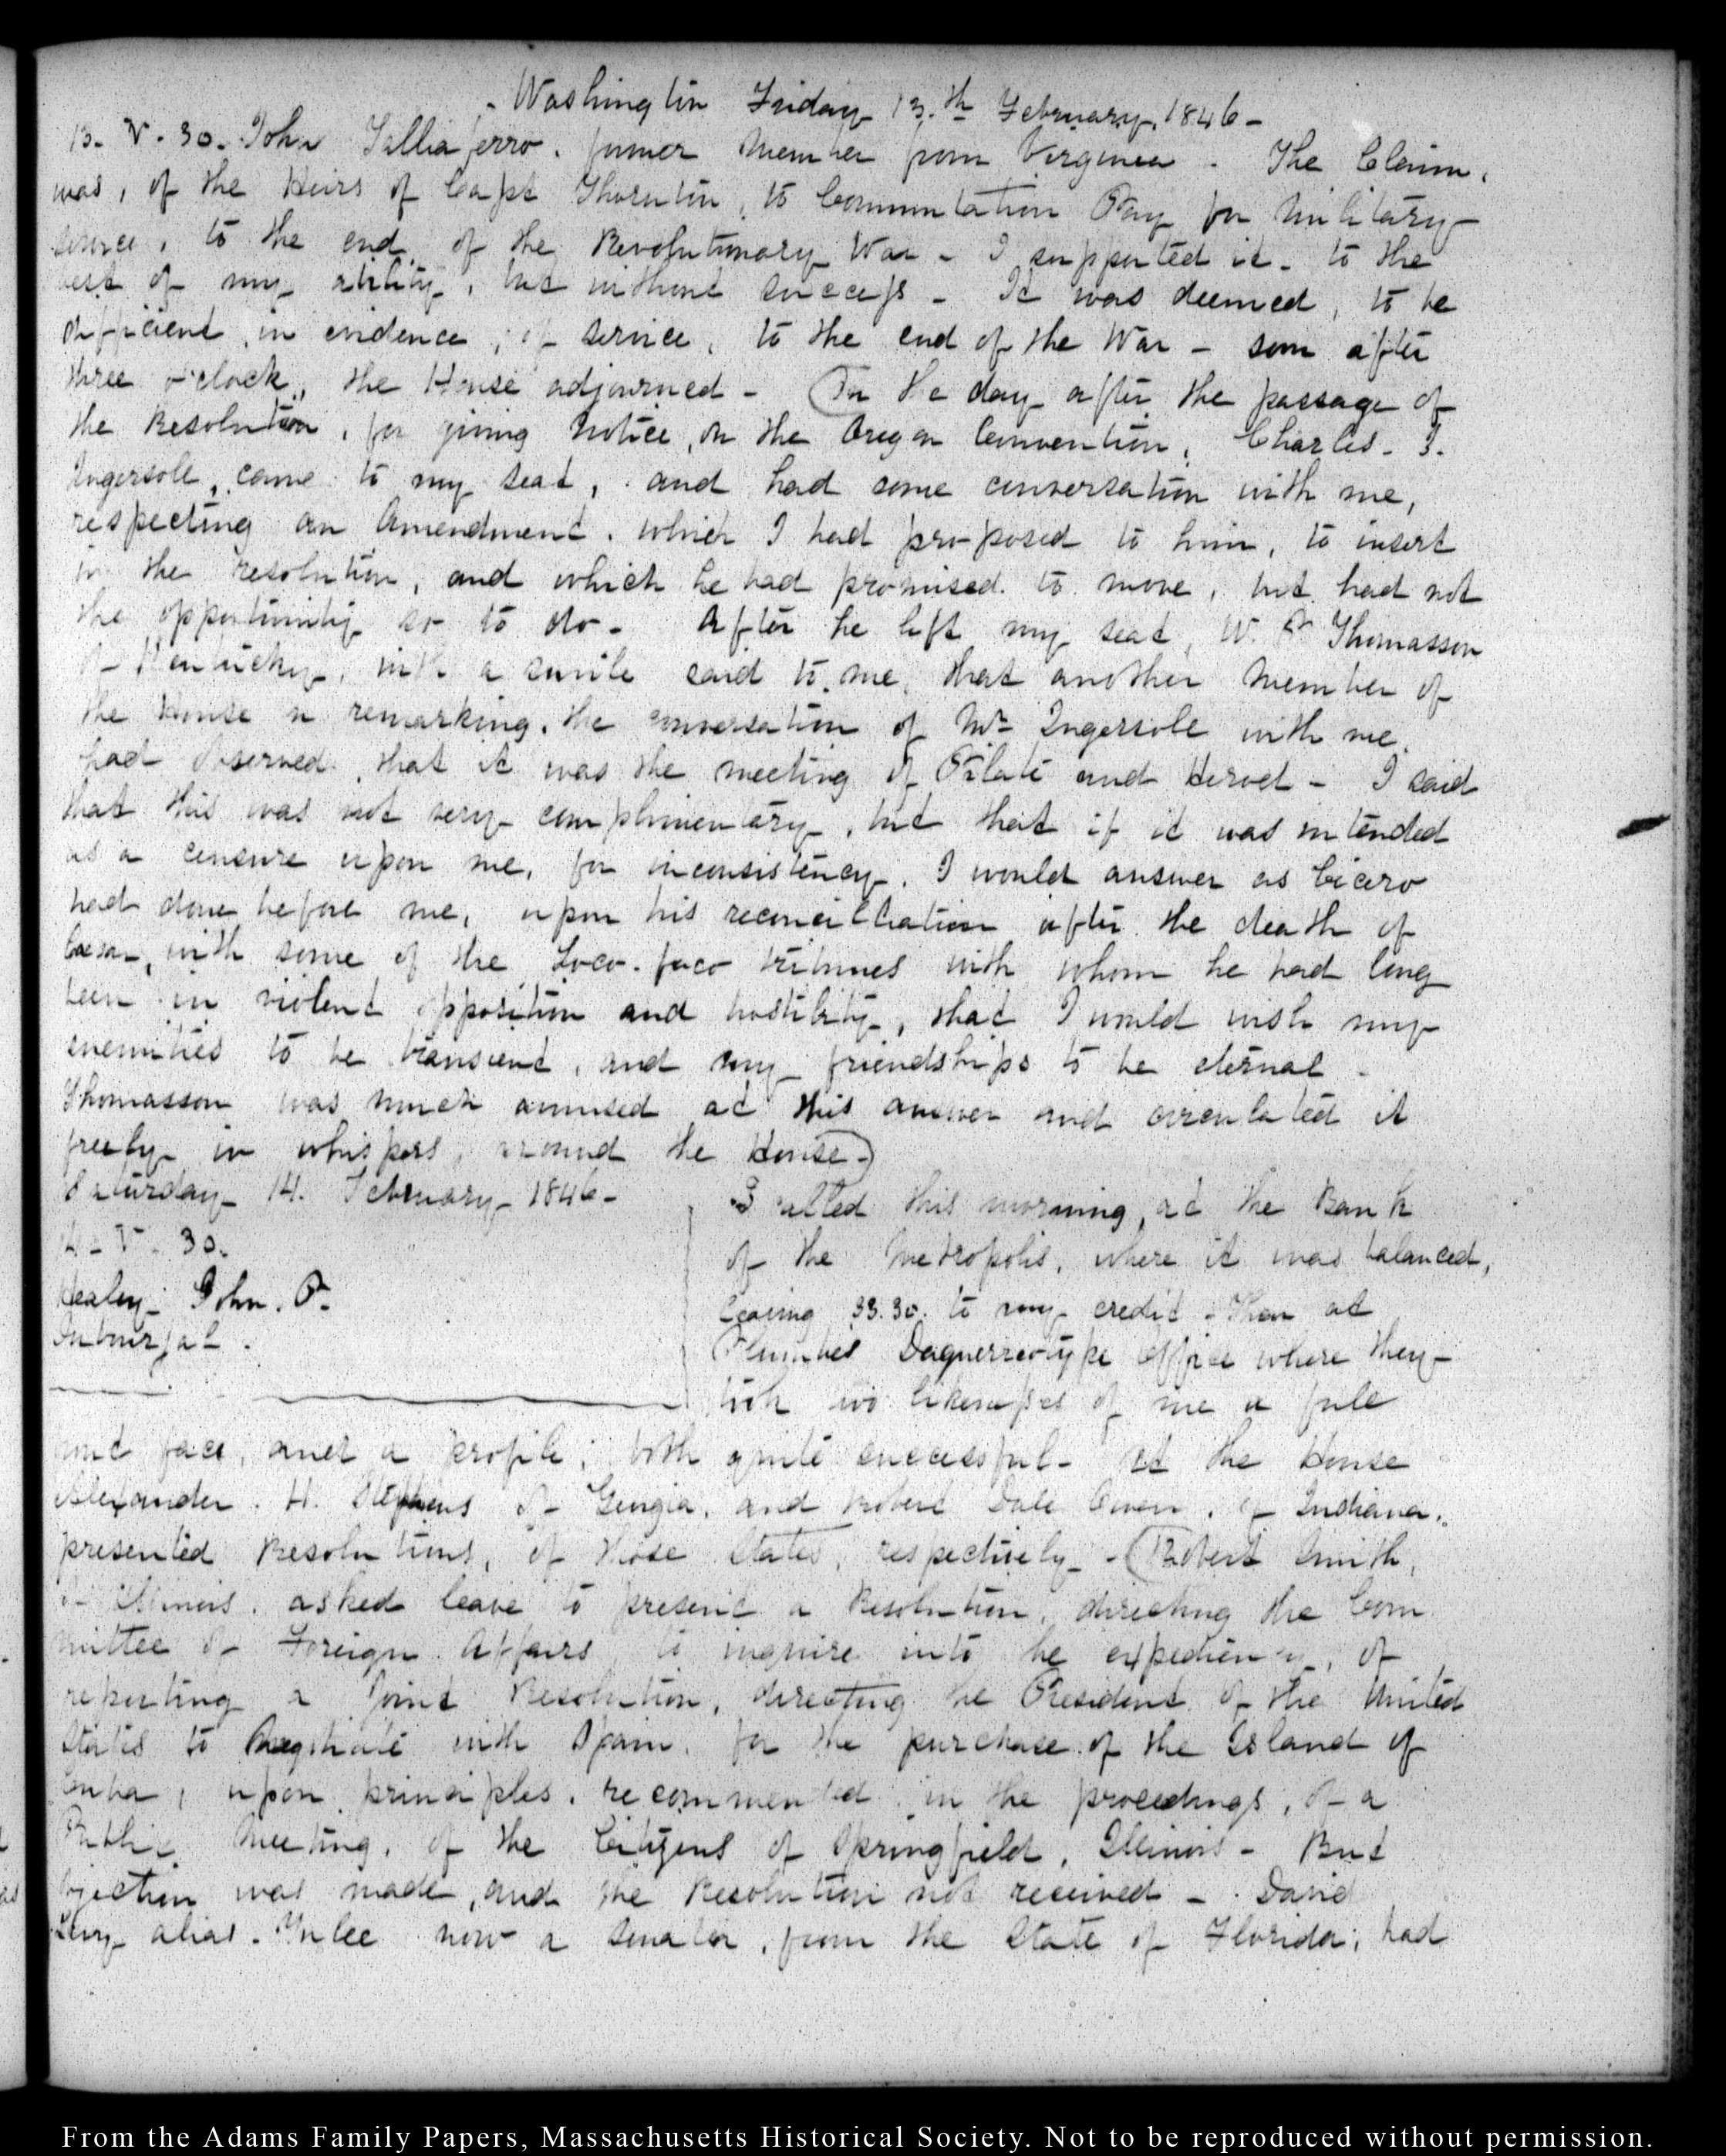 Washington Friday 13.th February. 1846-
13. V. 30. John Talliaferro. former member from Virginia. The Claim.
was, of the Heirs of Capt Thornton, to Commutation Pay for Military
service, to the end, of the Revolutionary War - I supported it - to the
best of my ability, but without success - It was deemed, to be
deficient, in evidence, of service, to the end of the War - soon after
three o'clock, the House adjourned - (On the day after the passage of
the Resolution, for giving Notice, on the Oregon Convention, Charles. J.
Ingersoll, came to my seat, and had some conversation with me,
respecting an Amendment. which I had proposed to him, to insert
in the resolution, and which he had promised to move, but had not
the opportunity so to do - After he left my seat, W. P. Thomasson
of Kentucky, with a smile said to me, that another member of
the House in remarking, the conversation of Mr Ingersoll with me.
had observed, that it was the meeting of Pilate and Herod - I said
that this was not very complimentary, but that if it was intended
as a censure upon me, for inconsistency, I would answer as Cicero
had done before me, upon his reconciliation after the death of
Caesar, with some of the Loco-foco tribunes with whom he had long
been in violent opposition and hostility, that I would wish my
enmities to be transient, and my friendships to be eternal -
Thomasson was much amused at this answer and circulated it
freely in whispers, around the House -)
Saturday 14. February 1846-
14 - V. 30.
Healey John. P.
I called this morning, at the Bank
of the Metropolis, where it was balanced,
leaving 33.30. to my credit - Then at
Plumbe's Daguerreotype Office where they
took two likenesses of me a full
front face, and a profile; both quite successful - At the House
Alexander. H. Stephens of Georgia, and Robert Dale Owen, of Indiana.
presented Resolutions, of those States, respectively - (Robert Smith,
of Illinois. asked leave to present a Resolution, directing the Com
mittee of Foreign Affairs to inquire into the expediency, of
reporting a Joint Resolution, directing the President of the United
States to Negotiate with Spain, for the purchase of the Island of
Cuba, upon principles. recommended in the proceedings, of a
Public Meeting, of the Citizens of Springfield, Illinois - But
objection was made, and the Resolution not received - David
Levy alias. Yulee now a Senator, from the State of Florida, had
From the Adams Family Papers, Massachusetts Historical Society. Not to be reproduced without permission.